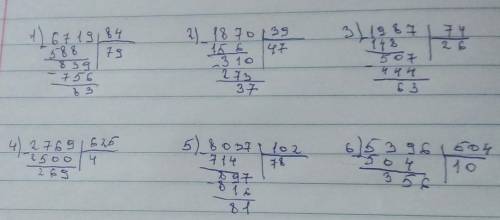 1) 6719 84 2) 1870 39 3) 1987 74
588 79 156 47 148 26
839 -310 507
-756 273 -444
83 37 63
4) 2769 625 5) 8037 102 6) 5396 504
2500 4 714 78 504 10
269 897 356
-816
81